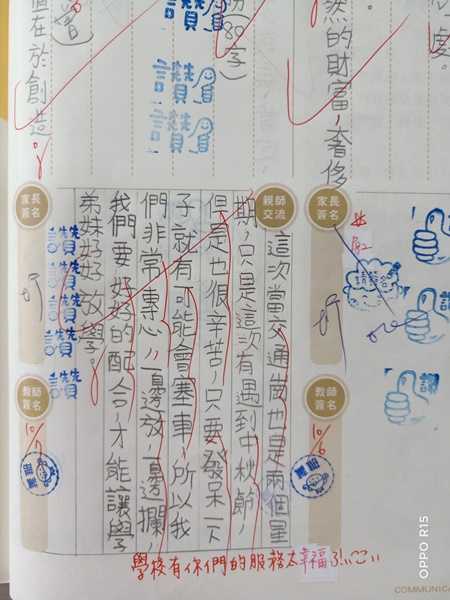 處。
然的財富,奢侈
(80字)
值在於創造。
讚
讚
讚
讚
家長簽名
教師簽名
10/6
親師交流
這次當交通崗也是兩個星
期,只是這次有遇到中秋節,
但是也很辛苦,只要發呆一下
子就有可能會塞車,所以我
們非常專心,一邊放,一邊攔,
我們要好好的配合才能讓學
弟妹好好放學。
讚
讚
讚
讚
讚
家長簽名
教師簽名
學校有你們的服務太幸福了!!
COMMUNICA
OPPO R15